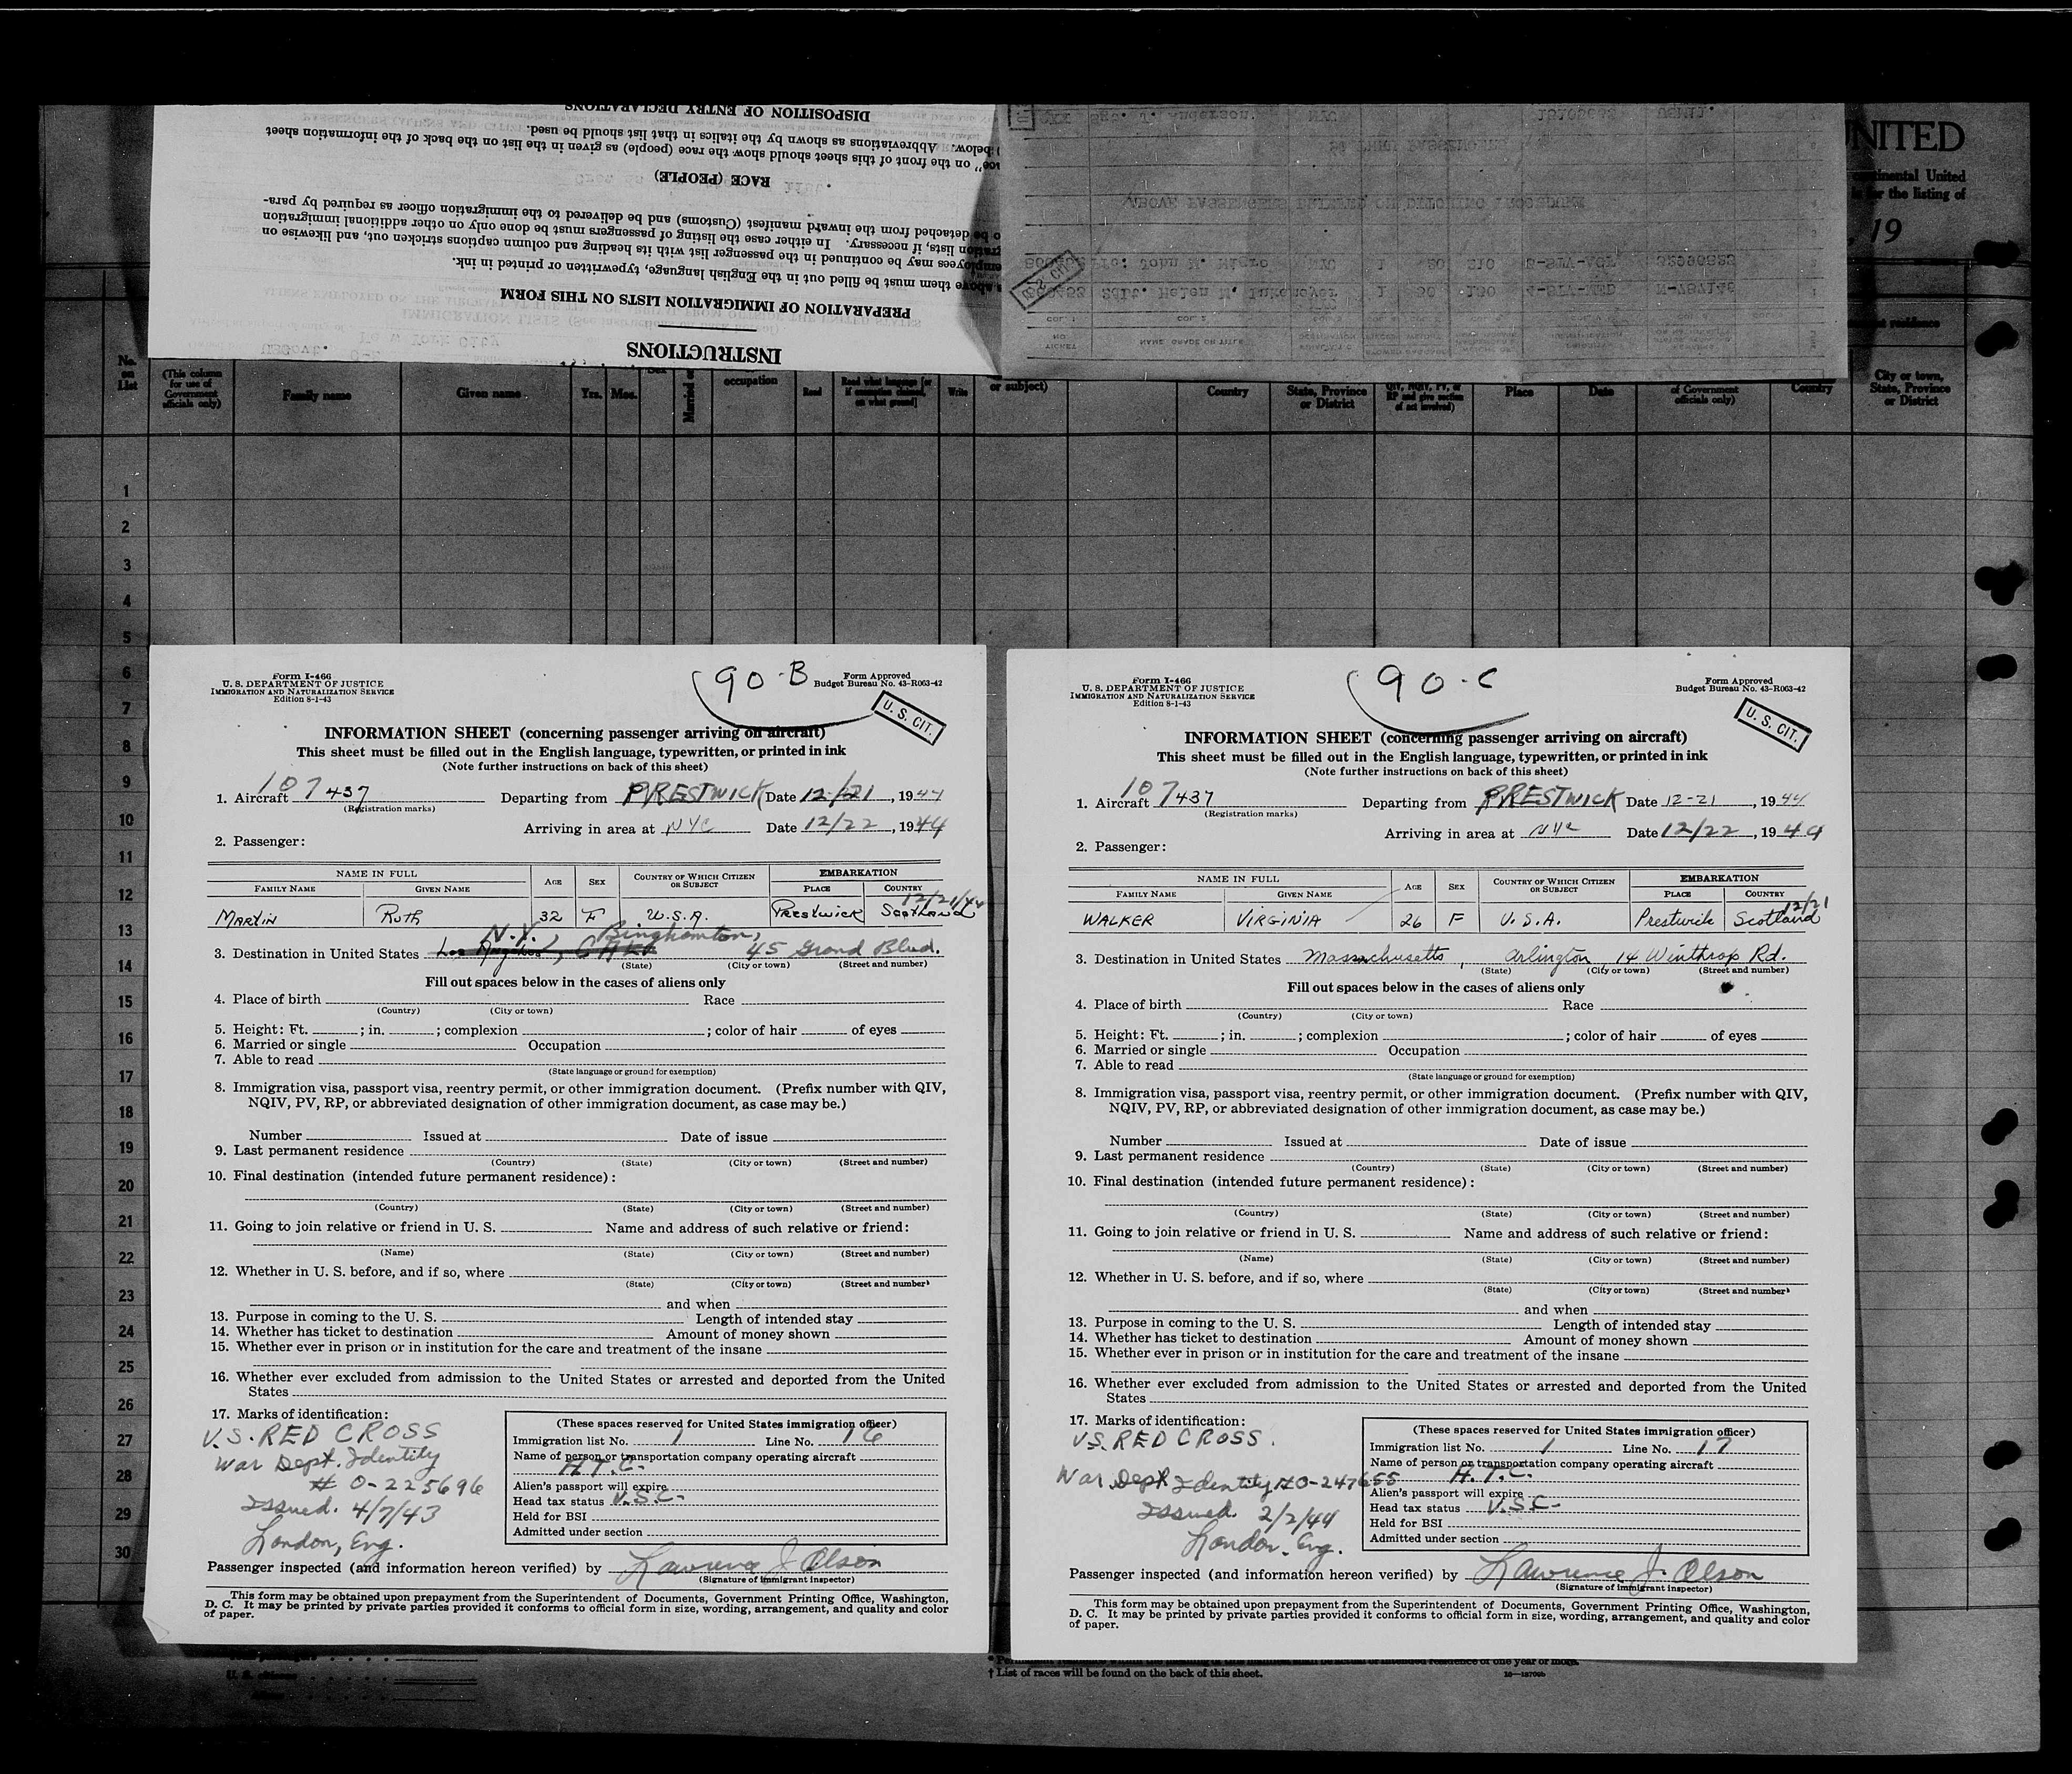 UNITED
continental United
is for the listing of
, 19
DISPOSITION OF ENTRY DECLARATIONS
below. Abbreviations as shown by the italics in that list should be used.
on the front of this sheet should show the race (people) as given in the list on the back of the information sheet
RACE (PEOPLE)
be detached from the inward manifest (Customs) and be delivered to the immigration officer as required by para-
lists, if necessary. In either case the listing of passengers must be done only on other additional immigration
employees may be continued in the passenger list with its heading and column captions stricken out, and likewise on
above them must be filled out in the English language, typewritten or printed in ink.
PREPARATION OF IMMIGRATION LISTS ON THIS FORM
INSTRUCTIONS
Sgt. J. Anderson. NYC
ABOVE PASSENGERS
John M. Nigro NYC 1
2dLt. Helen M. 1
U.S. CIT.
No. on List
(This column for use of Government officials only)
Family name
Given name
Yrs. Mos.
Sex
occupation
Read
Read what language [or if exemption claimed, on what ground]
Write
or subject)
Country
State, Province or District
Place
Date
of Government officials only)
Country
City or town, State, Province or District
1
2
3
4
5
6
7
8
9
10
11
12
13
14
15
16
17
18
19
20
21
22
23
24
25
26
27
28
29
30
Form I-466
U. S. DEPARTMENT OF JUSTICE
IMMIGRATION AND NATURALIZATION SERVICE
Edition 8-1-43
90-B
Form Approved
Budget Bureau No. 43-R063-42
U. S. CIT.
INFORMATION SHEET (concerning passenger arriving on aircraft)
This sheet must be filled out in the English language, typewritten, or printed in ink
(Note further instructions on back of this sheet)
1. Aircraft 107437 Departing from PRESTWICK Date 12/21, 1944
(Registration marks)
Arriving in area at NYC Date 12/22, 1944
2. Passenger:
NAME IN FULL AGE SEX COUNTRY OF WHICH CITIZEN OR SUBJECT EMBARKATION
FAMILY NAME GIVEN NAME PLACE COUNTRY
12/21/44
MARTIN RUTH 32 F U.S.A. Prestwick Scotland
N.Y., Binghamton,
3. Destination in United States Los Angeles, Calif 45 Grand Blvd.
(State) (City or town) (Street and number)
Fill out spaces below in the cases of aliens only
4. Place of birth Race
(Country) (City or town)
5. Height: Ft. ; in. ; complexion ; color of hair of eyes
6. Married or single Occupation
7. Able to read
(State language or ground for exemption)
8. Immigration visa, passport visa, reentry permit, or other immigration document. (Prefix number with QIV,
NQIV, PV, RP, or abbreviated designation of other immigration document, as case may be.)
Number Issued at Date of issue
9. Last permanent residence
(Country) (State) (City or town) (Street and number)
10. Final destination (intended future permanent residence):
(Country) (State) (City or town) (Street and number)
11. Going to join relative or friend in U. S. Name and address of such relative or friend:
(Name) (State) (City or town) (Street and number)
12. Whether in U. S. before, and if so, where
(State) (City or town) (Street and number)
and when
13. Purpose in coming to the U. S. Length of intended stay
14. Whether has ticket to destination Amount of money shown
15. Whether ever in prison or in institution for the care and treatment of the insane
16. Whether ever excluded from admission to the United States or arrested and deported from the United
States
17. Marks of identification:
U.S. RED CROSS
War Dept. Identity
# 0-225696
Issued. 4/7/43
London, Eng.
(These spaces reserved for United States immigration officer)
Immigration list No. 1 Line No. 16
Name of person or transportation company operating aircraft
A.T.C.
Alien's passport will expire
Head tax status U.S.C.
Held for BSI
Admitted under section
Passenger inspected (and information hereon verified) by Lawrence J. Olson
(Signature of immigrant inspector)
This form may be obtained upon prepayment from the Superintendent of Documents, Government Printing Office, Washington,
D. C. It may be printed by private parties provided it conforms to official form in size, wording, arrangement, and quality and color
of paper.
Form I-466
U. S. DEPARTMENT OF JUSTICE
IMMIGRATION AND NATURALIZATION SERVICE
Edition 8-1-43
90-C
Form Approved
Budget Bureau No. 43-R063-42
U. S. CIT.
INFORMATION SHEET (concerning passenger arriving on aircraft)
This sheet must be filled out in the English language, typewritten, or printed in ink
(Note further instructions on back of this sheet)
1. Aircraft 107437 Departing from PRESTWICK Date 12-21, 1944
(Registration marks)
Arriving in area at NYC Date 12/22, 1944
2. Passenger:
NAME IN FULL AGE SEX COUNTRY OF WHICH CITIZEN OR SUBJECT EMBARKATION
FAMILY NAME GIVEN NAME PLACE COUNTRY
12/21
WALKER VIRGINIA 26 F U.S.A. Prestwick Scotland
3. Destination in United States Massachusetts, Arlington 14 Winthrop Rd.
(State) (City or town) (Street and number)
Fill out spaces below in the cases of aliens only
4. Place of birth Race
(Country) (City or town)
5. Height: Ft. ; in. ; complexion ; color of hair of eyes
6. Married or single Occupation
7. Able to read
(State language or ground for exemption)
8. Immigration visa, passport visa, reentry permit, or other immigration document. (Prefix number with QIV,
NQIV, PV, RP, or abbreviated designation of other immigration document, as case may be.)
Number Issued at Date of issue
9. Last permanent residence
(Country) (State) (City or town) (Street and number)
10. Final destination (intended future permanent residence):
(Country) (State) (City or town) (Street and number)
11. Going to join relative or friend in U. S. Name and address of such relative or friend:
(Name) (State) (City or town) (Street and number)
12. Whether in U. S. before, and if so, where
(State) (City or town) (Street and number)
and when
13. Purpose in coming to the U. S. Length of intended stay
14. Whether has ticket to destination Amount of money shown
15. Whether ever in prison or in institution for the care and treatment of the insane
16. Whether ever excluded from admission to the United States or arrested and deported from the United
States
17. Marks of identification:
U.S. RED CROSS.
War Dept Identity # 0-247655
Issued. 2/2/44
London. Eng.
(These spaces reserved for United States immigration officer)
Immigration list No. 1 Line No. 17
Name of person or transportation company operating aircraft
A.T.C.
Alien's passport will expire
Head tax status U.S.C.
Held for BSI
Admitted under section
Passenger inspected (and information hereon verified) by Lawrence J. Olson
(Signature of immigrant inspector)
This form may be obtained upon prepayment from the Superintendent of Documents, Government Printing Office, Washington,
D. C. It may be printed by private parties provided it conforms to official form in size, wording, arrangement, and quality and color
of paper.
U. S. citizens
† List of races will be found on the back of this sheet.